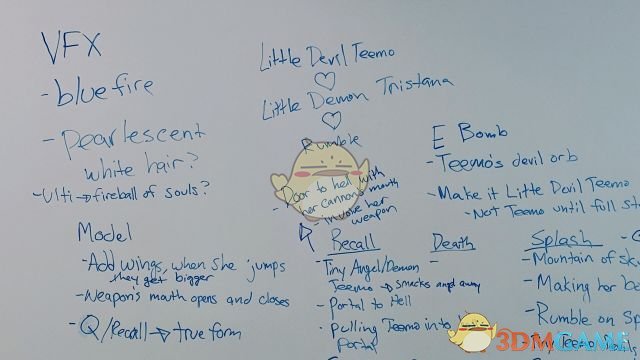 VFX
- blue fire
- pearlescent
white hair?
- Ulti → fireball of souls?
Model
- Add wings, when she jumps
they get bigger
- Weapon's mouth opens and closes
- Q/Recall → true form
Little Devil Teemo
♡
Little Demon Tristana
♡
Rumble
- Door to hell with
her cannons mouth
- invoke her
weapon
Recall
- Tiny Angel/Demon
Teemo → smacks angel away
- Portal to Hell
- pulling Teemo into
Portal
Death
E Bomb
- Teemo's devil orb
- Make it Little Devil Teemo
- Not Teemo until full st
Splash
- Mountain of sk
- Making her be
- Rumble on Sp
Tiny Teemo devils
3DMGAME